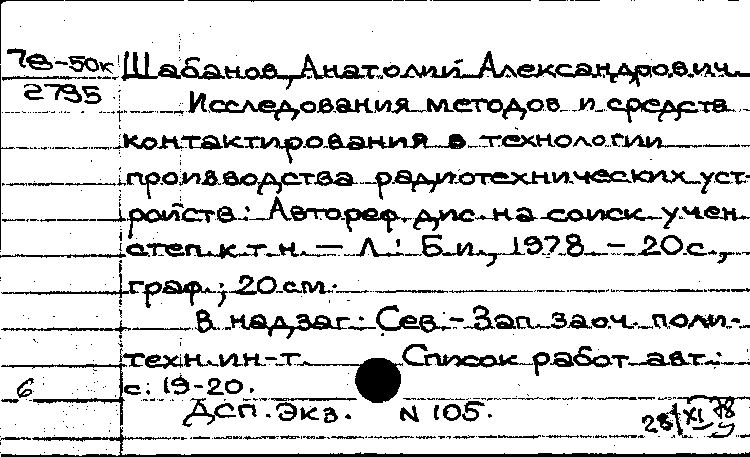 78-50к Шабанов, Анатолий Александрович
2795 Исследования методов и средств
контактирования в технологии
производства радиотехнических уст-
ройств: Автореф. дис. на соиск. учен.
степ. к.т.н. — Л.: Б.и., 1978. - 20с.,
граф.; 20 см.
В надзаг.: Сев.-Зап. заоч. поли-
техн. ин-т. Список работ авт.:
6 с. 19-20.
ДСП. Экз. N 105.
28/XI 78